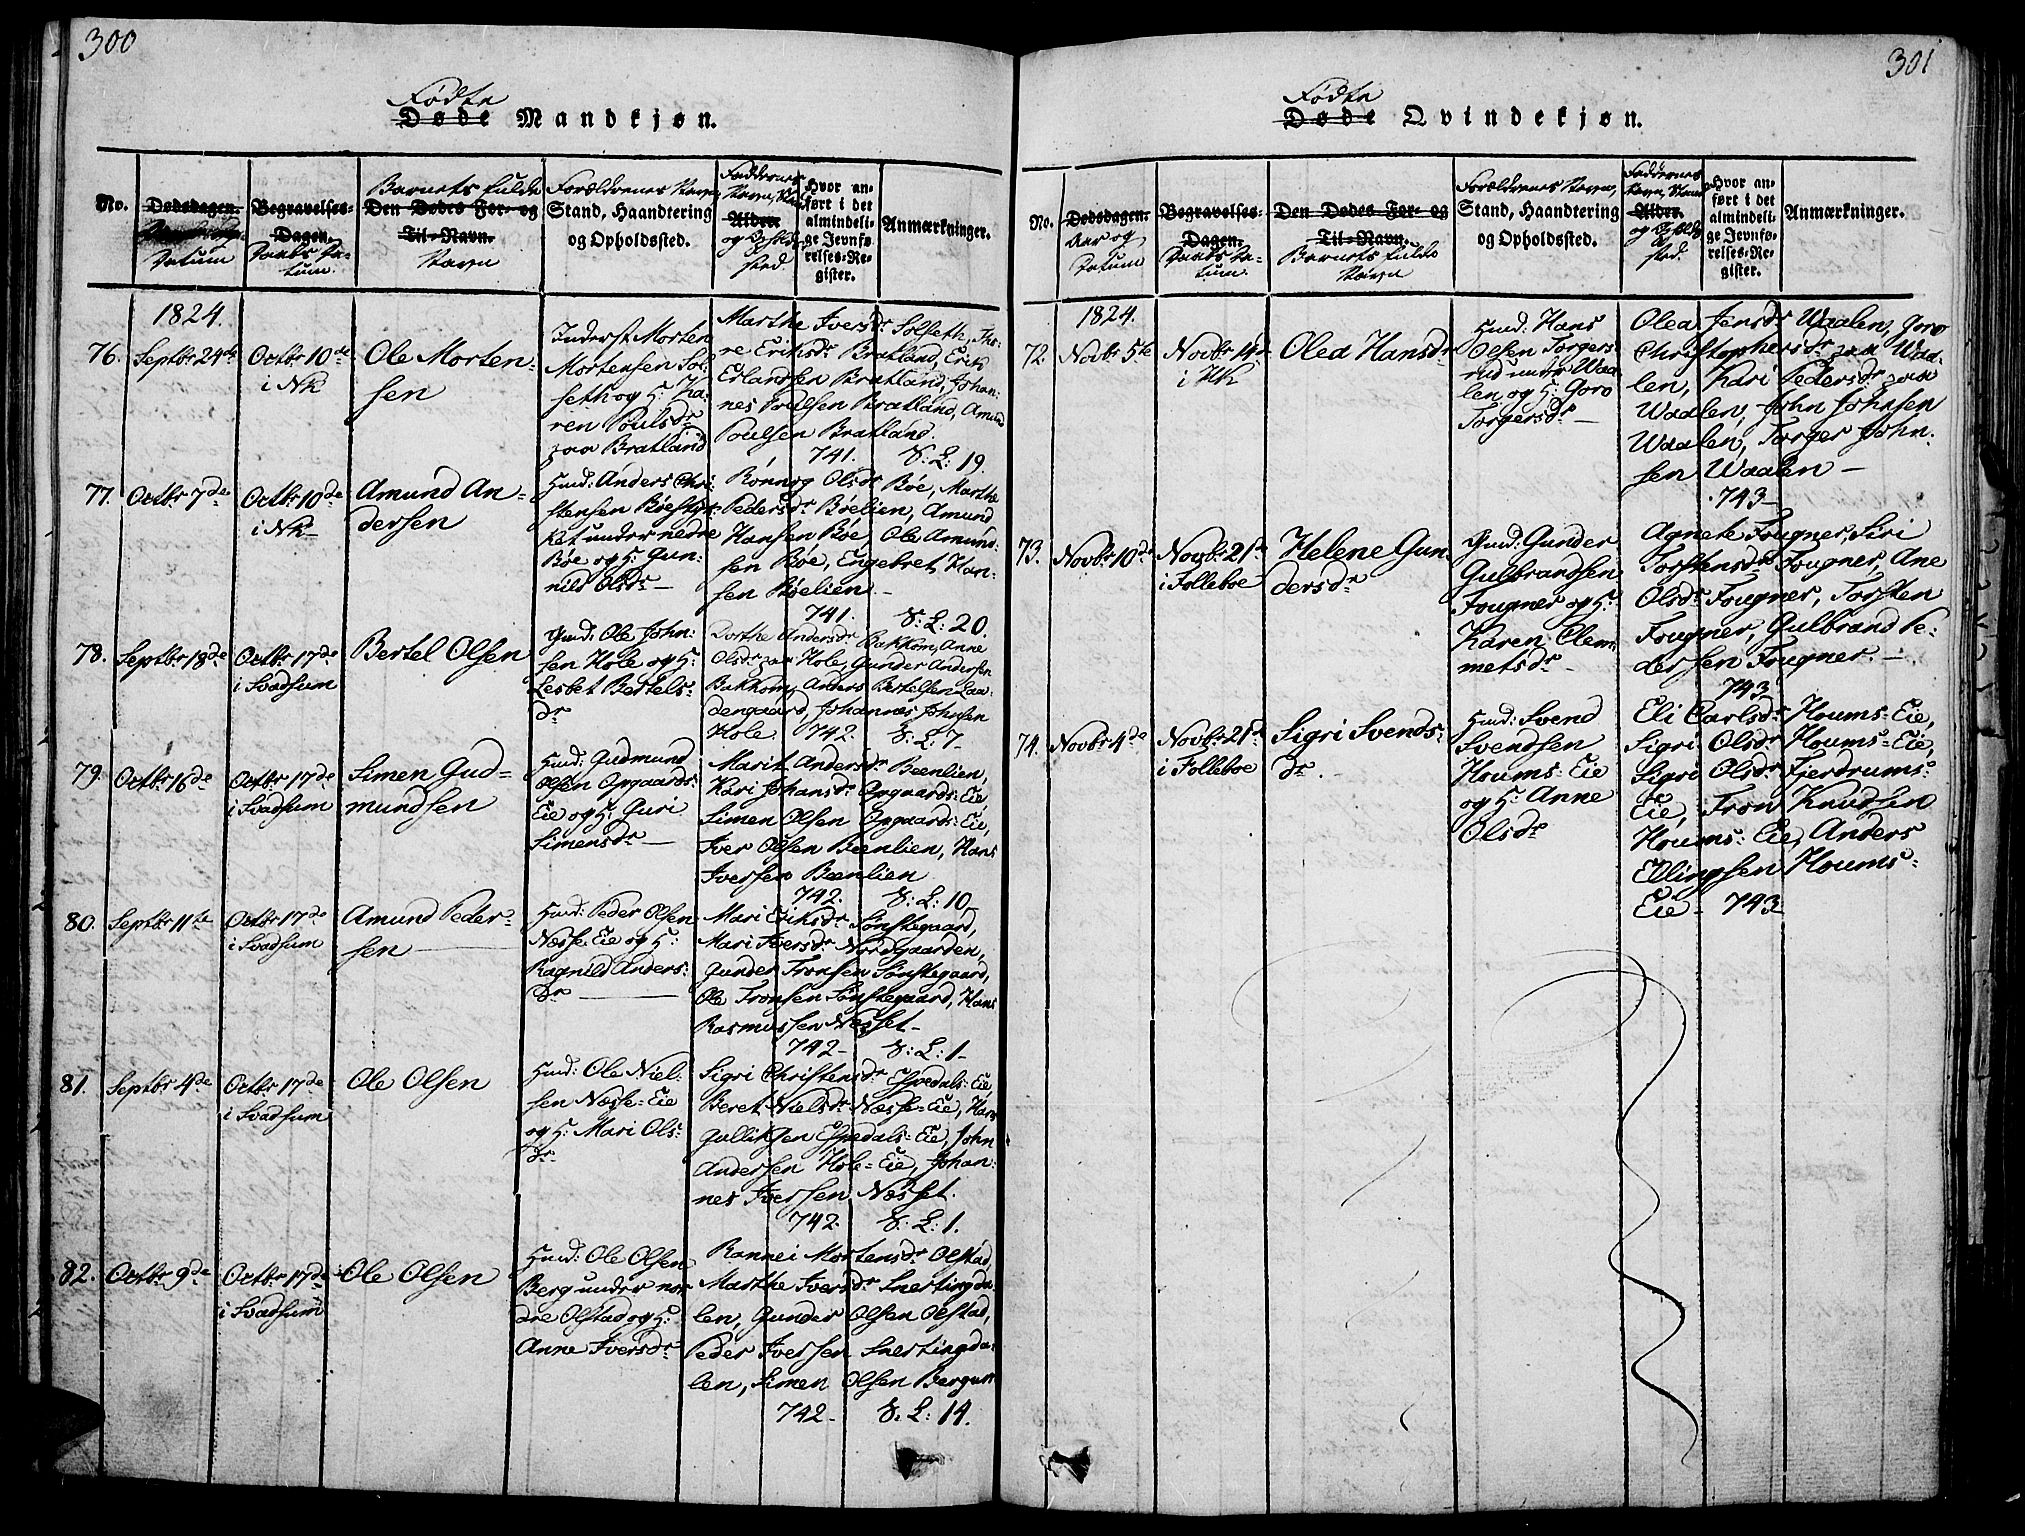 300
Fødte
Døde Mandkjøn.
No.
Dødsdagen.
Datum
Begravelses-
Dagen.
Daabs Da-
tum.
Barnets fulde
Den Dødes For- og
Til-Navn.
Navn
Forældrenes Navn,
Stand, Haandtering
og Opholdssted.
Faddernes
Navn,
Alder
og Opholds
sted.
Hvor an-
ført i det
almindeli-
ge Jevnfø-
relses-Re-
gister.
Anmærkninger.
1824.
76.
Septbr 24de
Octbr 10de
i Nk
Ole Morten-
sen
Inderst Morten
Mortensen Sol-
seth og H: Ka-
ren Poulsdr
paa Bratland
Marthe Iversdr Solseth, Tho-
re Eriksdr Bratland, Erik
Erlandsen Bratland, Johan-
nes Poulsen Bratland, Amund
Poulsen Bratland.
741. V: L: 19.
77.
Octbr 7de
Octbr 10de
i Nk
Amund An-
dersen
Huusd: Anders Chri-
stensen Bøestyk-
ket under nedre
Bøe og H: Gun-
nild Olsdr
Rønnog Olsdr Bøe, Marthe
Pedersdr Bøelien, Amund
Hansen Bøe, Ole Amund-
sen Bøe, Engebret Han-
sen Bøelien.
741. V: L: 20.
78.
Septbr 18de
Octbr 17de
i Svadsum
Bertel Olsen
Gmd: Ole John-
sen Hole og H:
Lesbet Bertels-
dr
Dorthe Andersdr Bakkom, Anne
Olsdr paa Hole, Gunder Andersen
Bakkom, Anders Bertelsen Laa-
dengaard, Johannes Johnsen
Hole. 742. V: L: 7
79.
Octbr 16de
Octbr 17de
i Svadsum
Simen Gud-
mundsen
Huusd: Gudmund
Olsen Opgaards-
Eie og H: Guri
Simensdr
Marit Andersdr Beenlien,
Kari Johansdr Opgaards-Eie,
Simen Olsen Opgaards-Eie,
Iver Olsen Beenlien, Hans
Iversen Beenlien
742. V: L: 10
80.
Septbr 11te
Octbr 17de
i Svadsum
Amund Peder-
sen
Huusd: Peder Olsen
Næsse-Eie og H:
Ragnild Anders-
dr
Mari Eriksdr Sønstegaard,
Mari Iversdr Nordgaarden,
Gunder Tronsen Sønstegaard,
Ole Tronsen Sønstegaard, Hans
Rasmussen Næsset
742 V: L: 1
81.
Septbr 4de
Octbr 17de
i Svadsum
Ole Olsen
Huusd: Ole Niel-
sen Næsse-Eie
og H: Mari Ols-
dr
Sigri Christensdr Espedals-Eie
Beret Nielsdr Næsse-Eie, Hans
Gulliksen Espedals-Eie, John
Andersen Hole-Eie, Johan-
nes Iversen Næsset.
742. V: L: 1.
82.
Octbr 9de
Octbr 17de
i Svadsum
Ole Olsen
Huusd: Ole Olsen
Berg under nor-
dre Olstad og H:
Anne Iversdr
Rannei Mortensdr Olstad,
Marthe Iversdr Snertingda-
len, Gunder Olsen Olstad,
Peder Iversen Snertingda-
len, Simen Olsen Berg
742 V: L: 14.
301
Fødte
Døde Qvindekjøn.
No.
Dødsdagen.
Aar og
Datum
Begravelses-
Dagen.
Daabs Da-
tum.
Den Dødes For- og
Til-Navn.
Barnets fulde
Navn
Forældrenes Navn,
Stand, Haandtering
og Opholdssted.
Faddernes
Navn, Stand
Alder.
og Opholds
sted.
Hvor an-
ført i det
almindeli-
ge Jevnfø-
relses-Re-
gister.
Anmærkninger.
1824.
72.
Novbr 5te
Novbr 14de
i HK
Olea Hansdr
Huusd: Hans
Olsen Torgers-
rud under Waa-
len og H: Goro
Torgersdr
Olea Jensdr Waalen, Goro
Christophersdr paa Waa-
len, Kari Pedersdr paa
Waalen, John Johnsen
Waalen, Torger John-
sen Waalen
743
73.
Novbr 10de
Novbr 21de
i Folleboe
Helene Gun
dersdr
Gmd: Gunder
Gulbrandsen
Fougner og H:
Karen Clem-
metsdr
Agnete Fougner, Siri
Torstensdr Fougner, Ane
Olsdr Fougner, Torsten
Fougner, Gulbrand Pe-
dersen Fougner.
743
74.
Novbr 4de
Novbr 21de
i Folleboe
Sigri Svends-
dr.
Huusd: Svend
Svendsen
Houms-Eie
og H: Anne
Olsdr
Eli Carlsdr Houms-Eie,
Sigri Olsdr Houms-Eie,
Sigri Olsdr Fjerdrums-
Eie, Tron Knudsen
Houms-Eie, Anders
Ellingsen Houms-
Eie 743